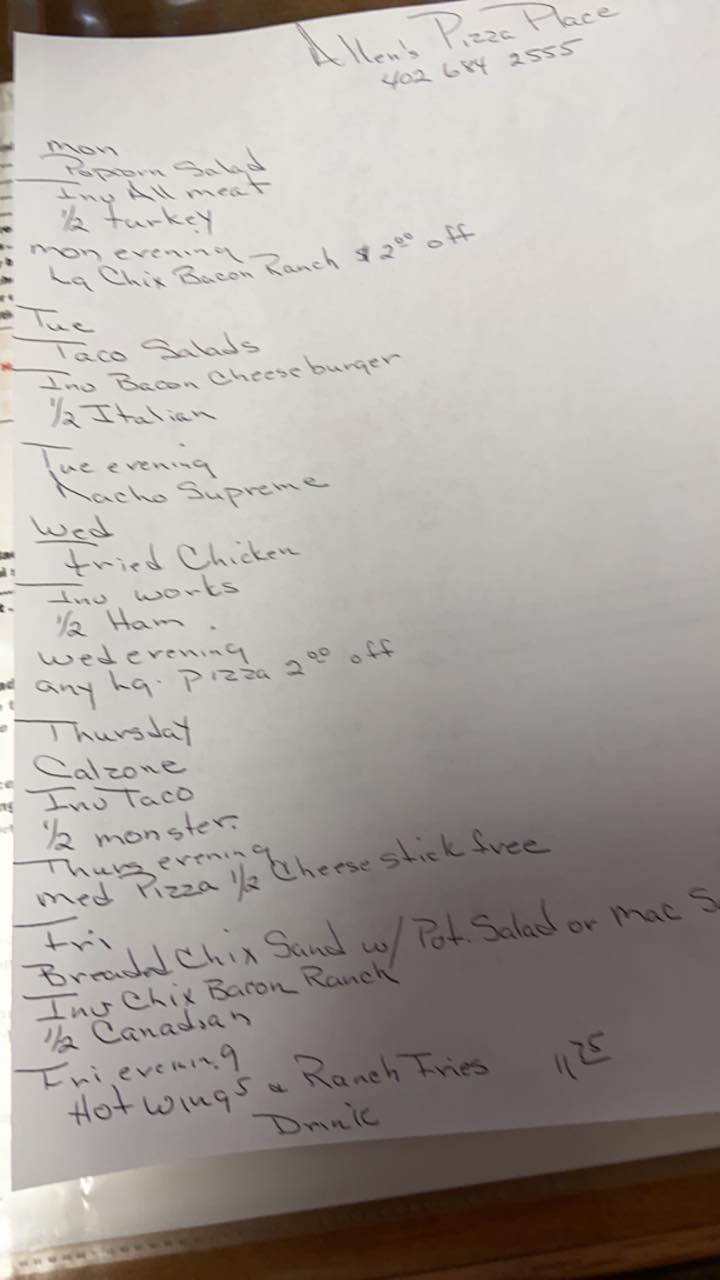 Allen's Pizza Place
402 684 2555
mon
Popcorn Salad
Inv All meat
1/2 turkey
mon evening
Lg Chix Bacon Ranch $2⁰⁰ off
Tue
Taco Salads
Inv Bacon Cheeseburger
1/2 Italian
Tue evening
Nacho Supreme
Wed
Fried Chicken
Inv works
1/2 Ham.
wed evening
any Lg. Pizza 2⁰⁰ off
Thursday
Calzone
Inv Taco
1/2 monster.
Thurs evening
med Pizza 1/2 Cheese stick free
Fri
Breaded Chix Sand w/ Pot. Salad or mac
Inv Chix Bacon Ranch
1/2 Canadian
Fri evening
Hot wings & Ranch Fries 11⁷⁵